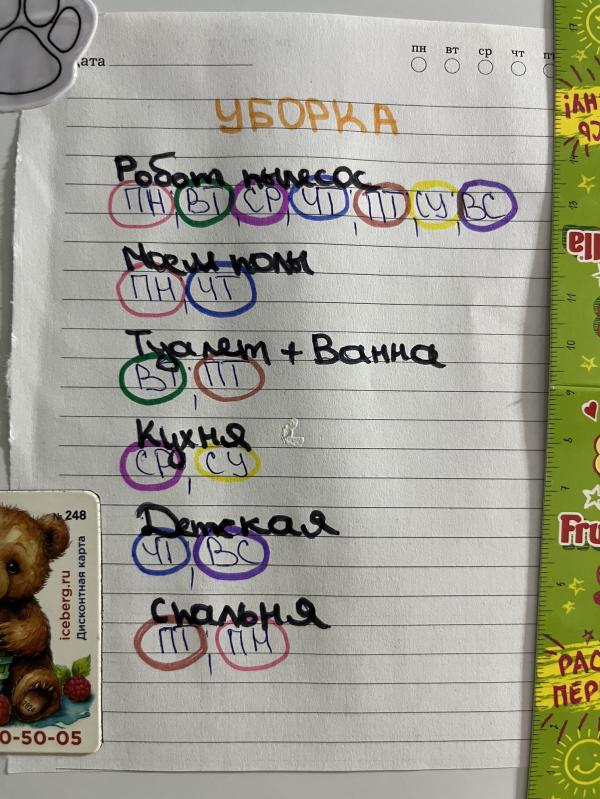 дата
пн вт ср чт пт
УБОРКА
Робот пылесос
ПН, ВТ, СР, ЧТ, ПТ, СУ, ВС
Моем полы
ПН, ЧТ
Туалет + Ванна
ВТ, ПТ
Кухня
СР, СУ
Детская
ЧТ, ВС
Спальня
ПТ, ПН
№ 248
iceberg.ru
Дисконтная карта
2024
0-50-05
Fru
РАС
ПЕР